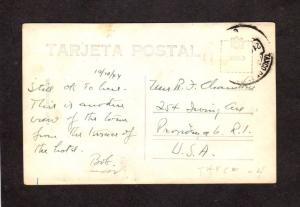 TARJETA POSTAL
10/10/44
Still OK to here.
This is another
view of the town
from the terrace of
the hotel.
Bob.
Mrs R. F. Chambers
254 Irving Ave
Providence 6. R.I.
U.S.A.